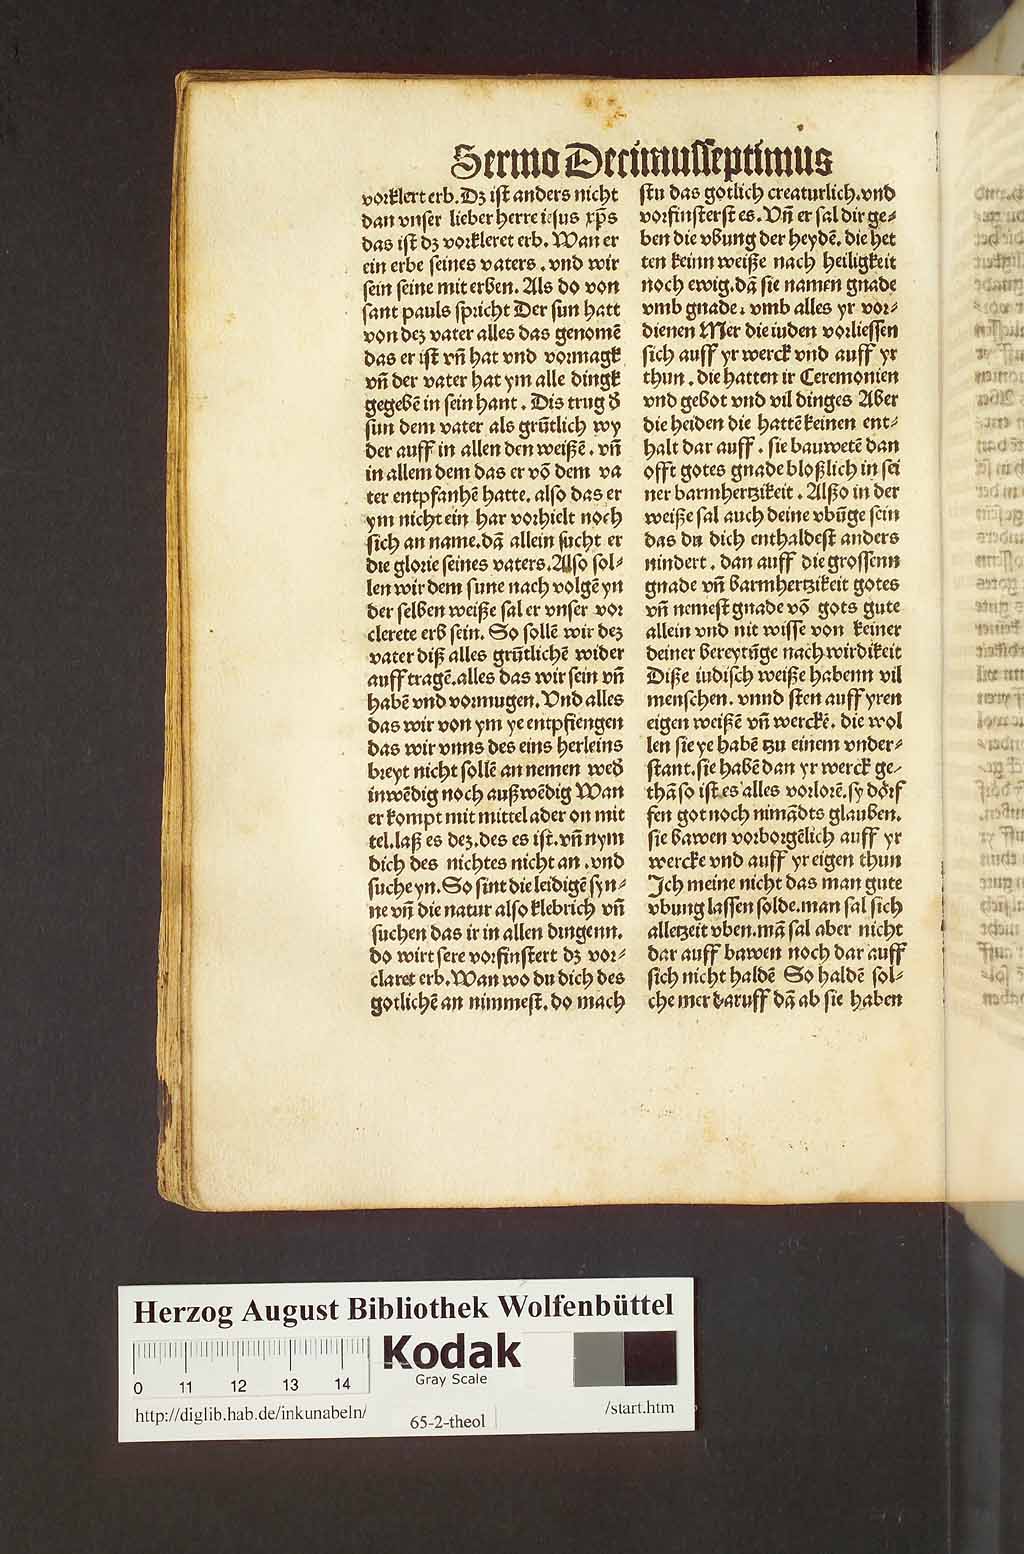 Sermo Decimusseptimus
vorklert erb. Dz ist anders nicht
dan vnser lieber herre iesus xp̄s
das ist dz vorkleret erb. Wan er
ein erbe seines vaters . vnd wir
sein seine mit erben. Als do von
sant pauls spricht Der sun hatt
von dez vater alles das genomē
das er ist vn̄ hat vnd vormagk
vn̄ der vater hat ym alle dingk
gegebē in sein hant . Dis trug d̕
sun dem vater als grūtlich wy
der auff in allen den weißē . vn̄
in allem dem das er vō dem va
ter entpfanhē hatte. also das er
ym nicht ein har vorhielt noch
sich an name. dā allein sucht er
die glorie seines vaters. Also sol⸗
len wir dem sune nach volgē yn
der selben weiße sal er vnser vor
clerete erb sein. So sollē wir dez
vater diß alles grūtlichē wider
auff tragē. alles das wir sein vn̄
habē vnd vormugen. Vnd alles
das wir von ym ye entpfiengen
das wir vnns des eins herleins
breyt nicht sollē an nemen wed̕
inwēdig noch außwēdig Wan
er kompt mit mittel ader on mit
tel. laß es dez. des es ist. vn̄ nym
dich des nichtes nicht an . vnd
suche yn. So sint die leidigē syn⸗
ne vn̄ die natur also klebrich vn̄
suchen das ir in allen dingenn.
do wirt sere vorfinstert dz vor⸗
claret erb. Wan wo du dich des
gotlichē an nimmest. do mach
stu das gotlich creaturlich. vnd
vorfinsterst es. Vn̄ er sal dir ge⸗
ben die vbung der heydē. die het
ten keinn weiße nach heiligkeit
noch ewig. dā sie namen gnade
vmb gnade. vmb alles yr vor⸗
dienen Mer die iuden vorliessen
sich auff yr werck vnd auff yr
thun . die hatten ir Ceremonien
vnd gebot vnd vil dinges Aber
die heiden die hattē keinen ent⸗
halt dar auff . sie bauwetē dan
offt gotes gnade bloßlich in sei
ner barmhertzikeit . Alßo in der
weiße sal auch deine vbūge sein
das du dich enthaldest anders
nindert . dan auff die grossenn
gnade vn̄ barmhertzikeit gotes
vn̄ nemest gnade vō gots gute
allein vnd nit wisse von keiner
deiner bereytūge nach wirdikeit
Diße iudisch weiße habenn vil
menschen. vnnd sten auff yren
eigen weißē vn̄ werckē. die wol
len sie ye habē tzu einem vnder⸗
stant. sie habē dan yr werck ge⸗
thā so ist es alles vorlorē. sy dörf
fen got noch nimādts glauben.
sie bawen vorborgēlich auff yr
wercke vnd auff yr eigen thun
Ich meine nicht das man gute
vbung lassen solde. man sal sich
alletzeit vben. mā sal aber nicht
dar auff bawen noch dar auff
sich nicht haldē So haldē sol⸗
che mer daruff dā ab sie haben
Herzog August Bibliothek Wolfenbüttel
Kodak
Gray Scale
0 11 12 13 14
http://diglib.hab.de/inkunabeln/
65-2-theol
/start.htm